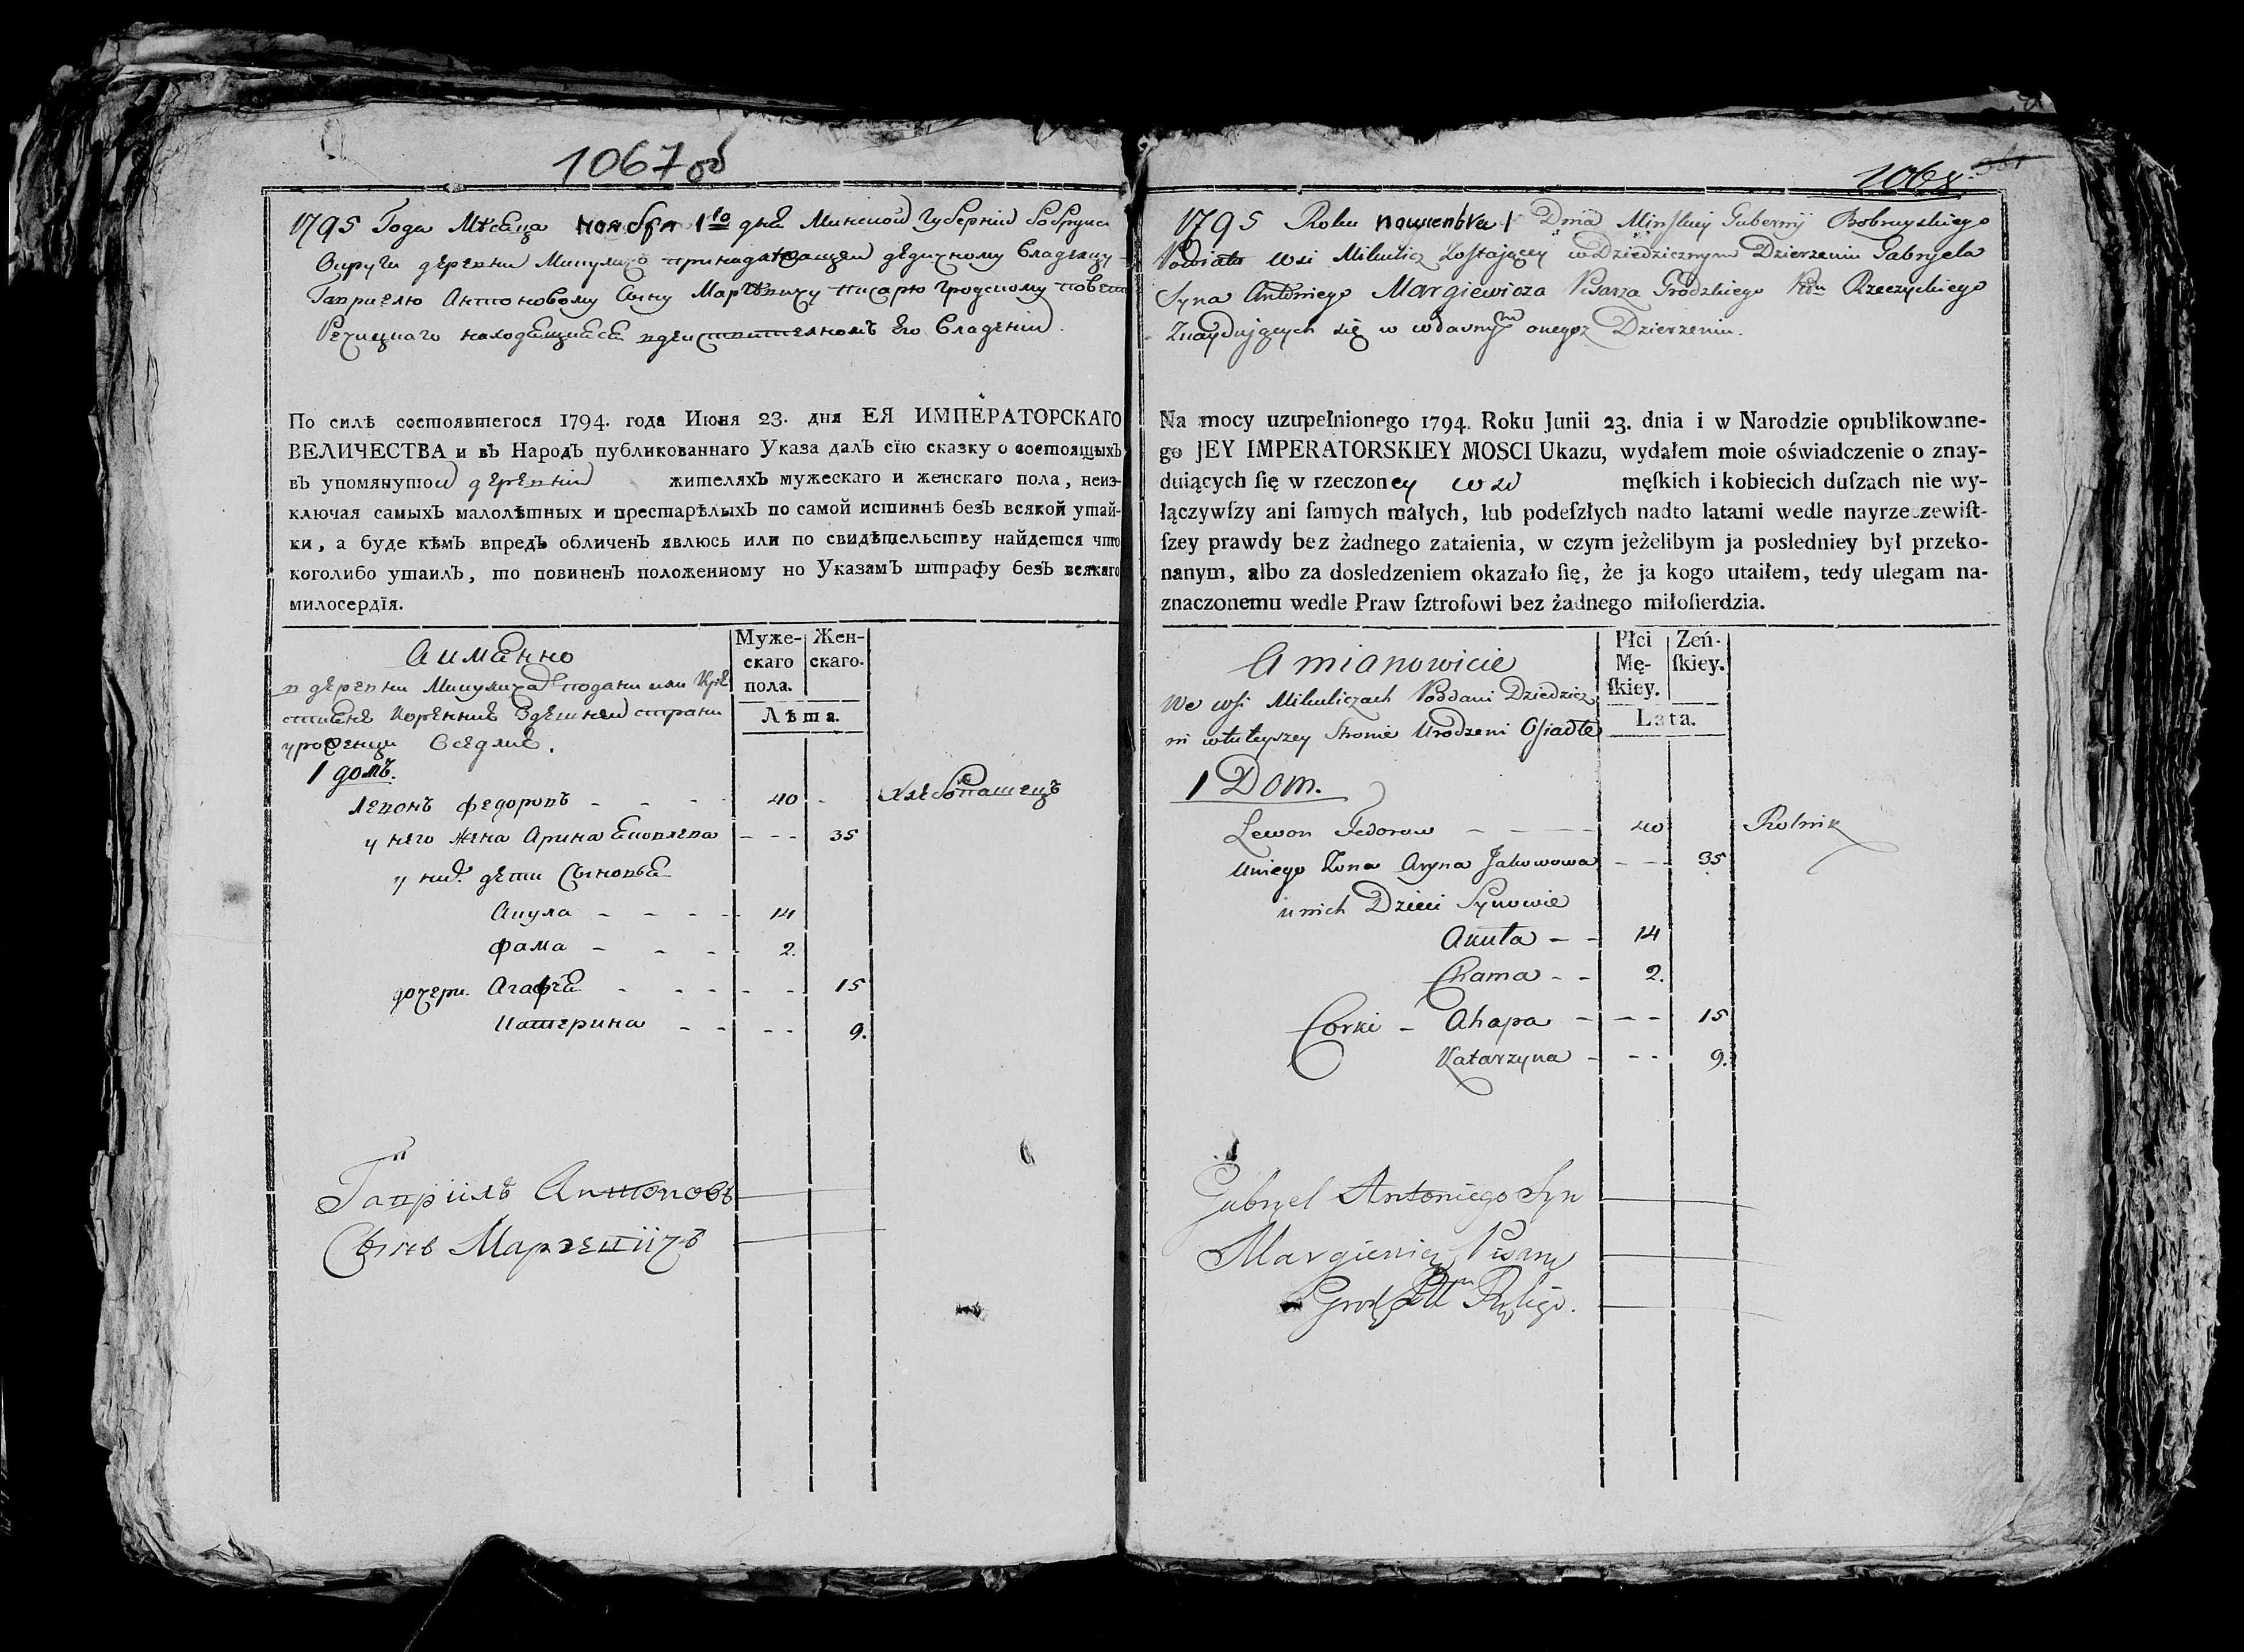 1067 об
1795 Года Мѣсяца ноября 1го дня Минской Губерніи Бобруиск
Округи деревни Микуличъ принадлежащей дедичному Владелцу
Гавриелю Антоновому Сыну Маргевичу писарю Гродскому повета
Речицкаго находящияся вдействителномъ Его Владенiи.
По силѣ состоявшегося 1794. года Июня 23. дня ЕЯ ИМПЕРАТОРСКАГО
ВЕЛИЧЕСТВА и въ Народъ публикованнаго Указа далъ сїю сказку о состоящихъ
въ упомянутой деревни жителяхъ мужескаго и женскаго пола, неиз-
ключая самыхъ малолѣтных и престарѣлыхъ по самой истиннѣ безъ всякой утай-
ки, а буде кѣмъ впредъ обличенъ явлюсь или по свидѣтельству найдется что
коголибо утаилъ, то повиненъ положенному по Указамъ штрафу безъ всякаго
милосердїя.
Аимянно
Муже-
скаго
пола.
Жен-
скаго.
Лѣта.
в деревни Микуличахъ подани или Кре
стияне Коренние Здешней страни
уроженци Оседлие.
1 домъ.
Левонъ Федоровъ - - - 40 - Хлебопашецъ
у него жена Арина Яковлева - - - 35
у них дети Сыновья
Акула - - - - 14
Фама - - - 2.
дочери. Агафия - - - - - 15
Катерина - - - - 9.
Гавриилъ Антоновъ
Сынъ Маргевичъ
1068
1795 Roku nowienbra 1 Dnia Minskiej Gubernij Bobruyskiego
Powiatu Wsi Mikulicz Zostaiącey w Dziedzicznym Dzierzeniu Gabryela
Syna Antoniego Margiewicza Pisarza Grodzkiego Pttu Rzeczyckiego
Znayduiących się w wdawnym onegoz Dzierzeniu.
Na mocy uzupełnionego 1794. Roku Junii 23. dnia i w Narodzie opublikowane-
go JEY IMPERATORSKIEY MOSCI Ukazu, wydałem moie oświadczenie o znay-
duiących ſię w rzeczoney wsi męſkich i kobiecich duſzach nie wy-
łączywſzy ani ſamych małych, lub podeſzłych nadto latami wedle nayrzeczewiſt-
ſzey prawdy bez żadnego zataienia, w czym jeżelibym ja posledniey był przeko-
nanym, albo za dosledzeniem okazało ſię, że ja kogo utaiłem, tedy ulegam na-
znaczonemu wedle Praw ſztrofowi bez żadnego miłoſierdzia.
A mianowicie
Płci
Mę-
ſkiey.
Zeń-
ſkiey.
Lata.
We wsi Mikuliczach Poddani Dziedzicz
ni w tuteyszey Stronie Urodzeni Osiadłe
1 Dom.
Lewon Fedorow - - - 40 Rolnik
Uniego Żona Aryna Jakowowa - - - 35
u nich Dzieci Synowie
Akuła - - 14
Chama - - 2.
Corki - Ahapa - - - - 15
Katarzyna - - - 9.
Gabryel Antoniego Syn
Margiewicz Pisarz
Grodz Pttu